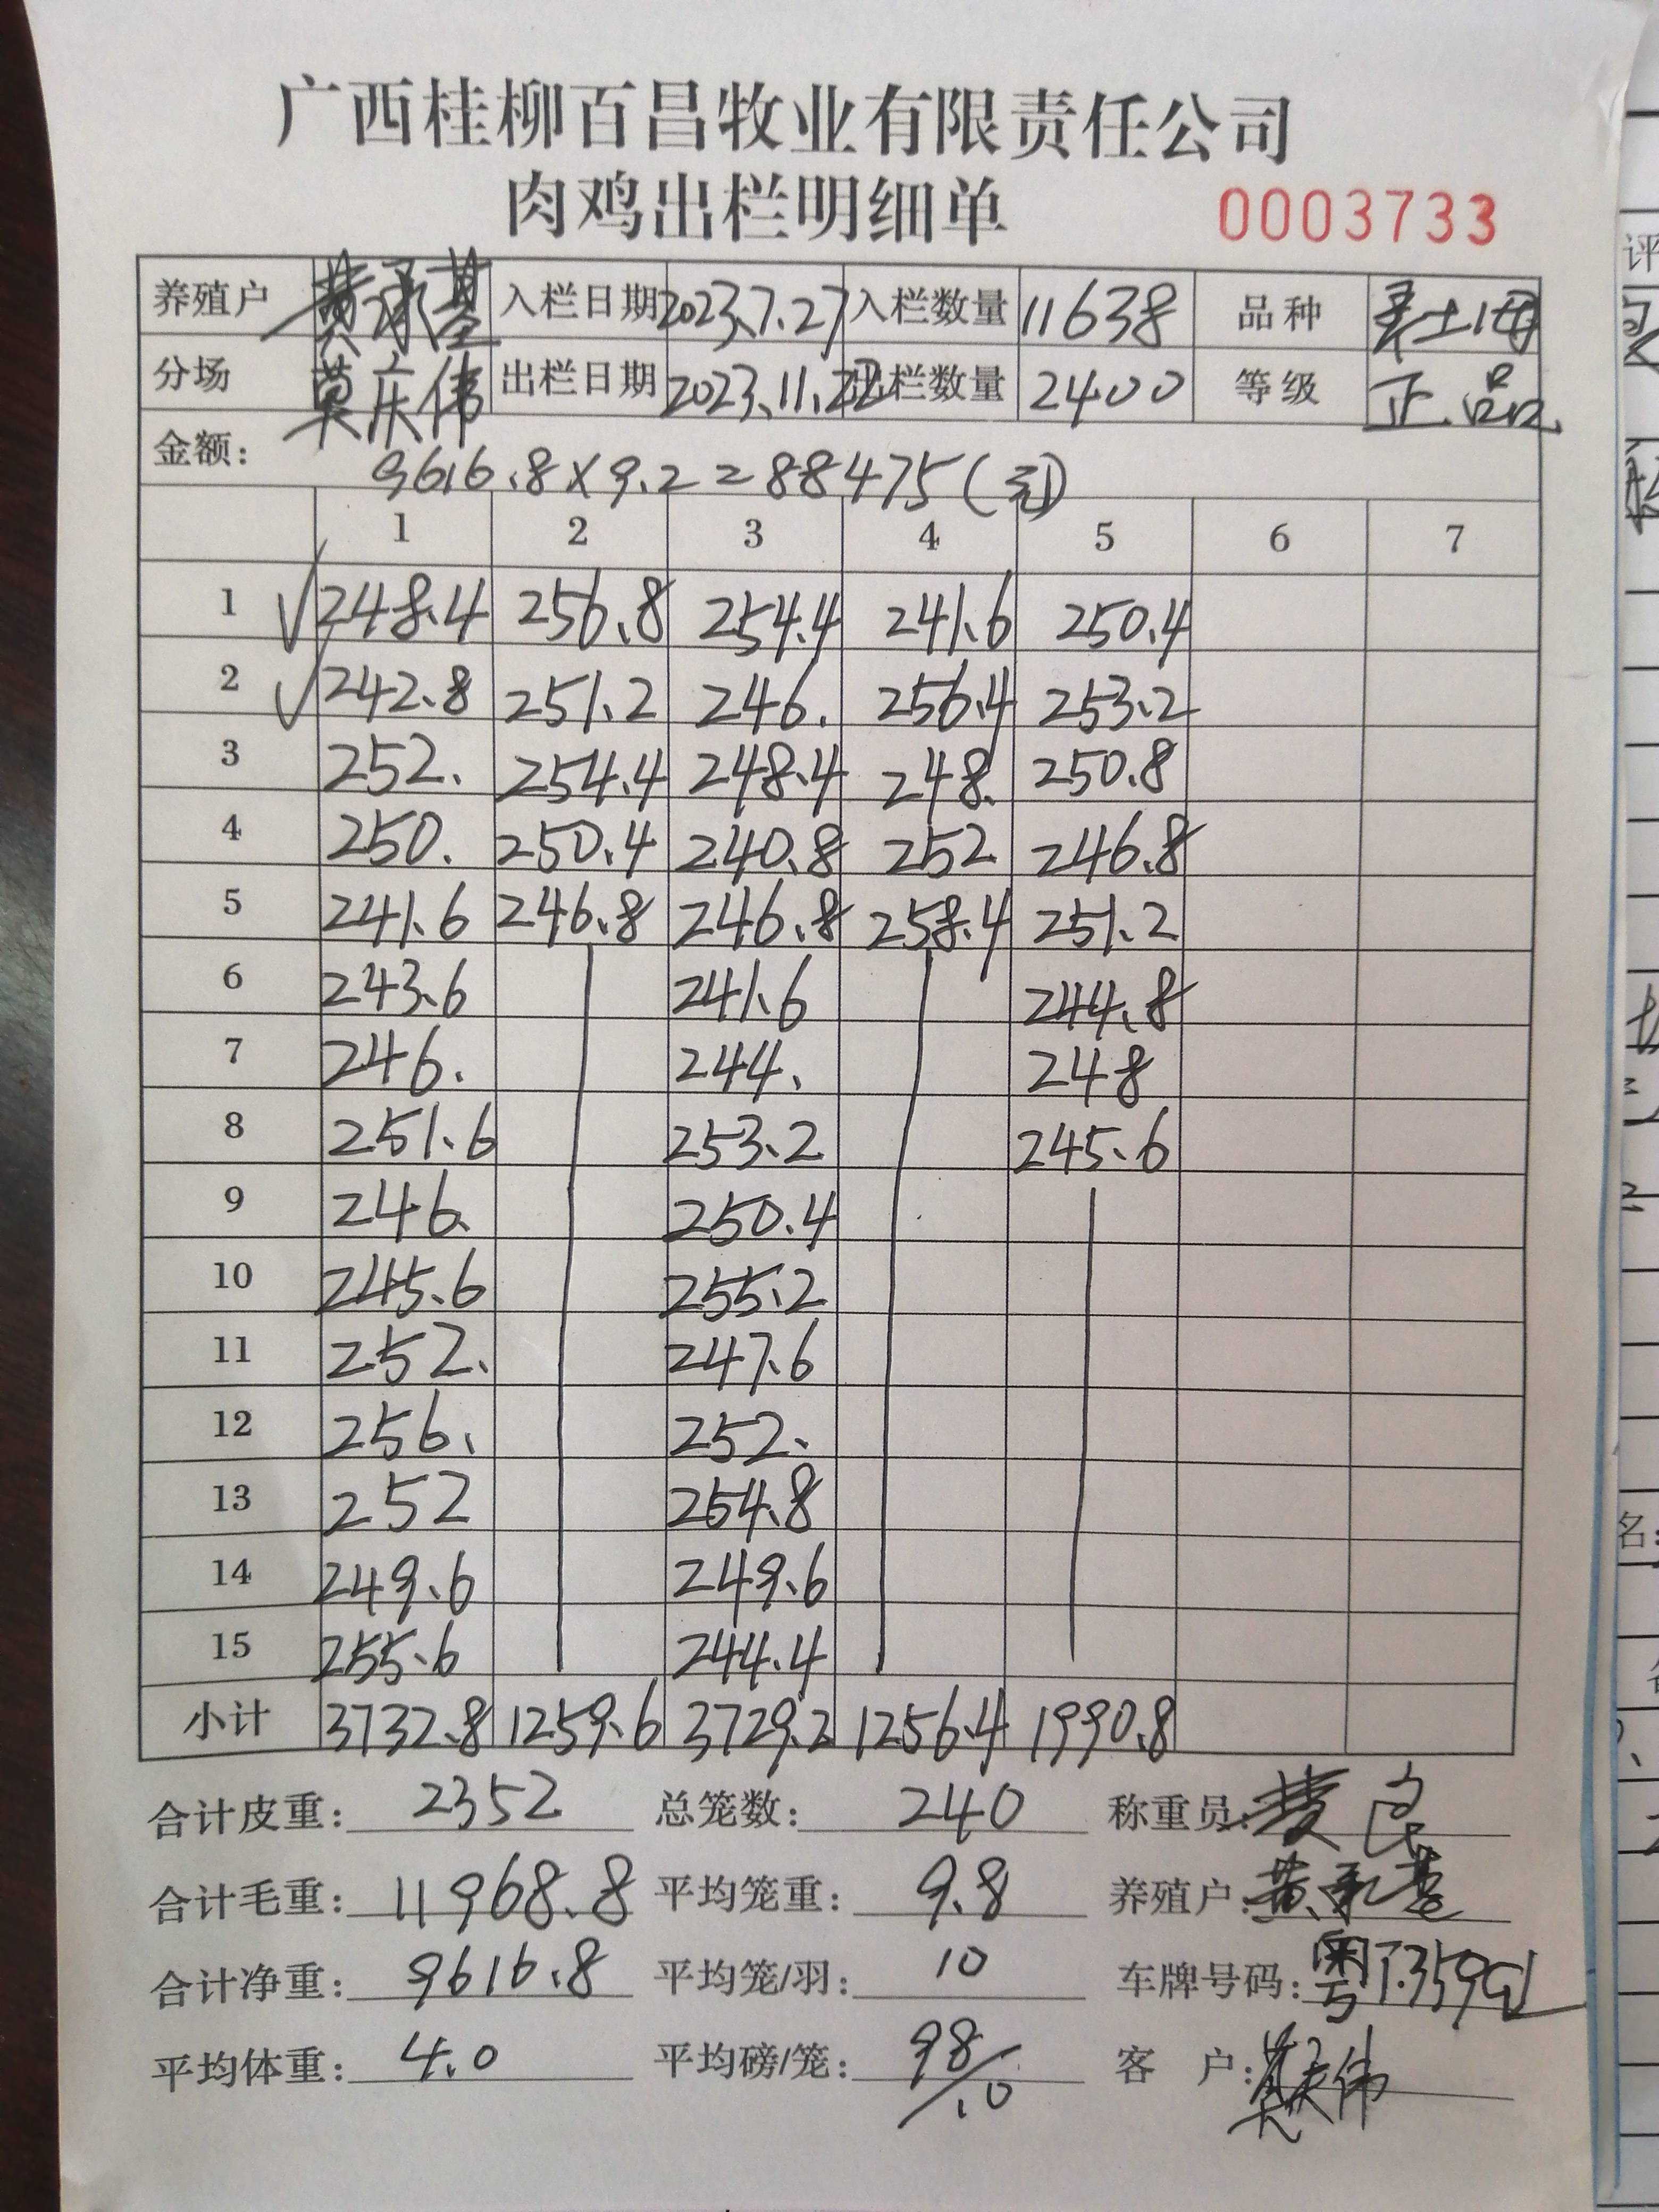 广西桂柳百昌牧业有限责任公司
肉鸡出栏明细单 0003733
养殖户 黄承基 入栏日期 2023.7.27 入栏数量 11638 品种 土
分场 莫庆伟 出栏日期 2023.11.22 出栏数量 2400 等级 正品
金额: 9616.8×9.2=88475(元)
1 2 3 4 5 6 7
1 √248.4 256.8 254.4 241.6 250.4
2 √242.8 251.2 246. 256.4 253.2
3 252. 254.4 248.4 248. 250.8
4 250. 250.4 240.8 252 246.8
5 241.6 246.8 246.8 258.4 251.2
6 243.6 241.6 244.8
7 246. 244. 248
8 251.6 253.2 245.6
9 246. 250.4
10 245.6 255.2
11 252. 247.6
12 256. 252.
13 252 254.8
14 249.6 249.6
15 255.6 244.4
小计 3732.8 1259.6 3729.2 1256.4 1990.8
合计皮重: 2352 总笼数: 240 称重员:
合计毛重: 11968.8 平均笼重: 9.8 养殖户: 黄承基
合计净重: 9616.8 平均笼/羽: 10 车牌号码:
平均体重: 4.0 平均磅/笼: 98/10 客 户: 莫庆伟